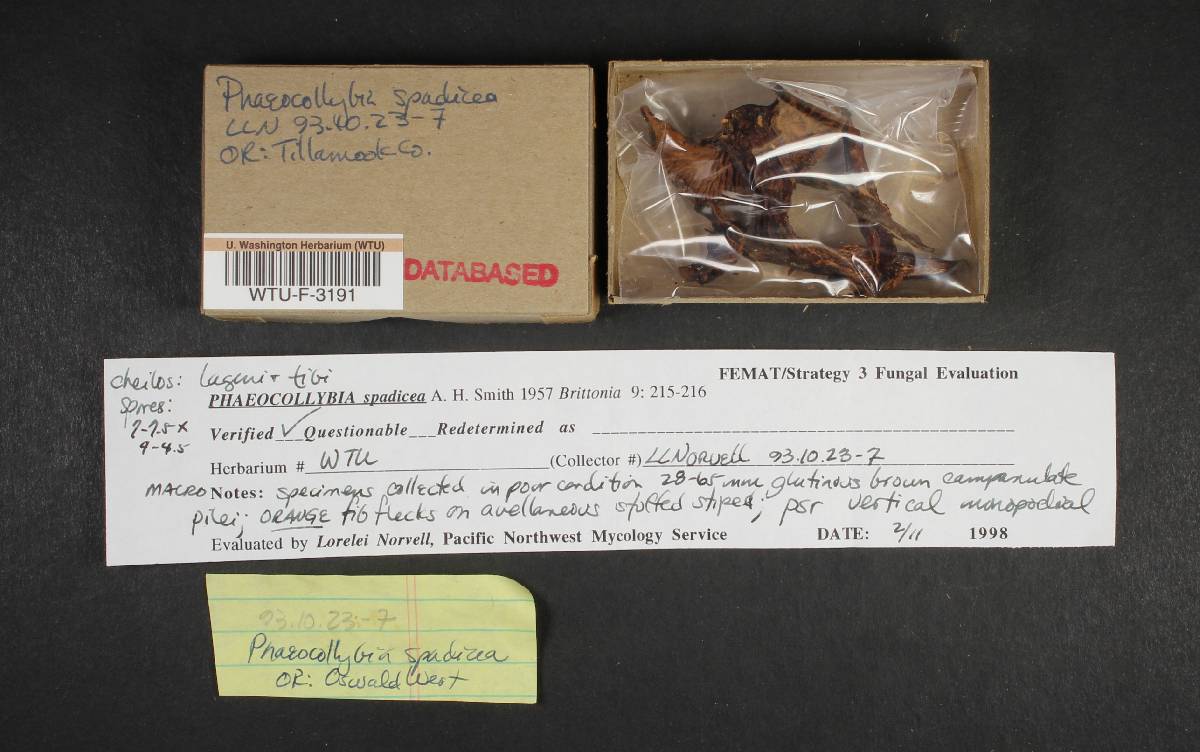 Phaeocollybia spadicea
LLN 93.10.23-7
OR: Tillamook Co.
U. Washington Herbarium (WTU)
WTU-F-3191
DATABASED
cheilos: lageni + tibi
FEMAT/Strategy 3 Fungal Evaluation
spores:
PHAEOCOLLYBIA spadicea A. H. Smith 1957 Brittonia 9: 215-216
7-7.5 x
4-4.5
Verified ✓ Questionable___Redetermined as
Herbarium # WTU (Collector #) LLNorvell 93.10.23-7
MACRO Notes: specimens collected in poor condition 28-65 mm glutinous brown campanulate
pilei; ORANGE tib flecks on avellaneous stuffed stipes; psr vertical monopodial
Evaluated by Lorelei Norvell, Pacific Northwest Mycology Service DATE: 2/11 1998
93.10.23-7
Phaeocollybia spadicea
OR: Oswald West